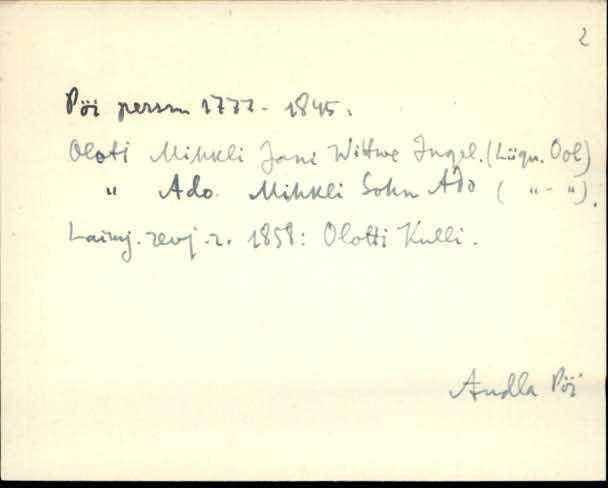 2
Pöi person 1777 - 1845.
Oloti Mihkli Jani Wittwe Ingel. (Liigu. Ool)
" Ado. Mihkli Sohn Ado ( " - " ).
Laimj. revj. r. 1858: Olotti Kulli.
Audla Pöi